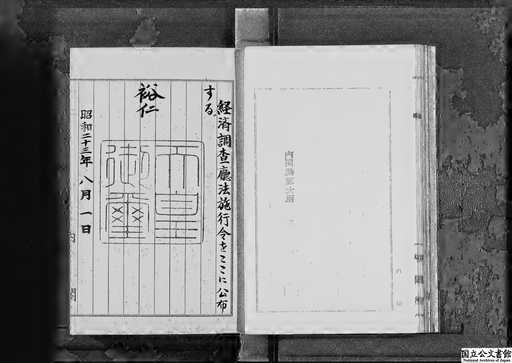 経済調査廳法施行令をここに公布
する。
裕仁
天皇
御璽
昭和二十三年八月一日
内閣
国立公文書館
National Archives of Japan